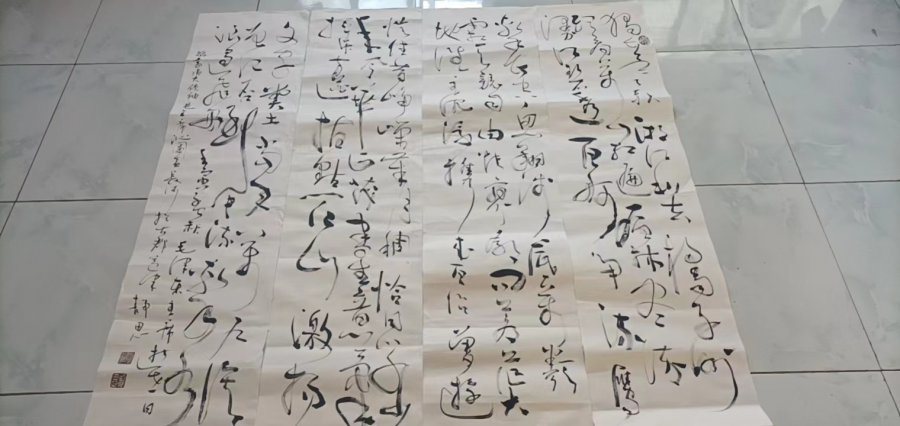 独立寒秋湘江北去橘子洲
头看万山红遍层林尽染
漫江碧透百舸争流鹰
击长空鱼翔浅底万类
霜天竞自由怅寥廓问苍茫大
地谁主沉浮携来百侣曾游
忆往昔峥嵘岁月稠恰同学少
年风华正茂书生意气挥
斥方遒指点江山激扬
文字粪土当年万户侯
曾记否到中流击水
浪遏飞舟 壬寅年秋毛泽东主席
沁园春长沙 静思